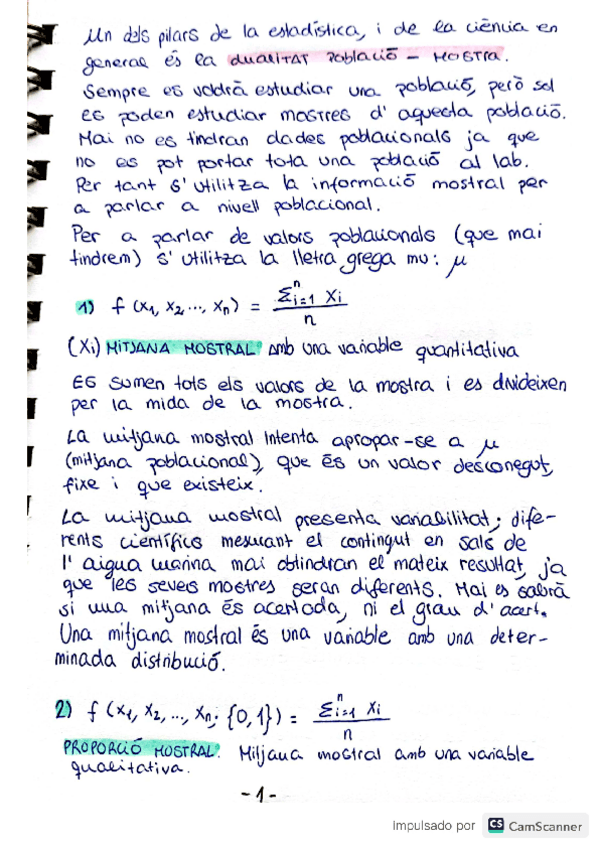 Un dels pilars de la estadística, i de la ciència en
general és la DUALITAT Població - MOSTRA.
Sempre es voldrà estudiar una població, però sol
es poden estudiar mostres d'aquesta població.
Mai no es tindran dades poblacionals ja que
no es pot portar tota una població al lab.
Per tant s'utilitza la informació mostral per
a parlar a nivell poblacional.
Per a parlar de valors poblacionals (que mai
tindrem) s'utilitza la lletra grega mu: μ
1) f (x₁, x₂ ..., xₙ) = Σⁿᵢ₌₁ xᵢ / n
(Xi) MITJANA MOSTRAL: amb una variable quantitativa
Es sumen tots els valors de la mostra i es divideixen
per la mida de la mostra.
La mitjana mostral intenta apropar-se a μ
(mitjana poblacional), que és un valor desconegut,
fixe i que existeix.
La mitjana mostral presenta variabilitat; dife-
rents científics mesurant el contingut en sals de
l'aigua marina mai obtindran el mateix resultat, ja
que les seves mostres seran diferents. Mai es sabrà
si una mitjana és acertada, ni el grau d'acert.
Una mitjana mostral és una variable amb una deter-
minada distribució.
2) f (x₁, x₂, ..., xₙ; {0,1}) = Σⁿᵢ₌₁ xᵢ / n
PROPORCIÓ MOSTRAL: Mitjana mostral amb una variable
qualitativa.
-1-
Impulsado por CS CamScanner